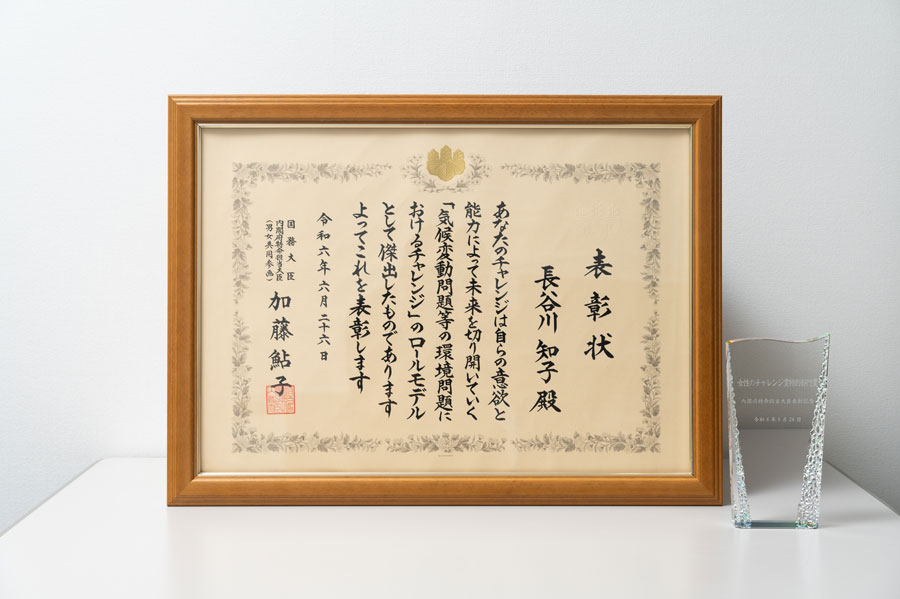 表彰状
長谷川 知子 殿
あなたのチャレンジは自らの意欲と
能力によって未来を切り開いていく
「気候変動問題等の環境問題に
おけるチャレンジ」のロールモデル
として傑出したものであります
よってこれを表彰します
令和六年六月二十六日
国務大臣
内閣府特命担当大臣
(男女共同参画)
加藤鮎子
女性のチャレンジ賞特別部門賞
内閣府特命担当大臣表彰記念
令和6年6月26日